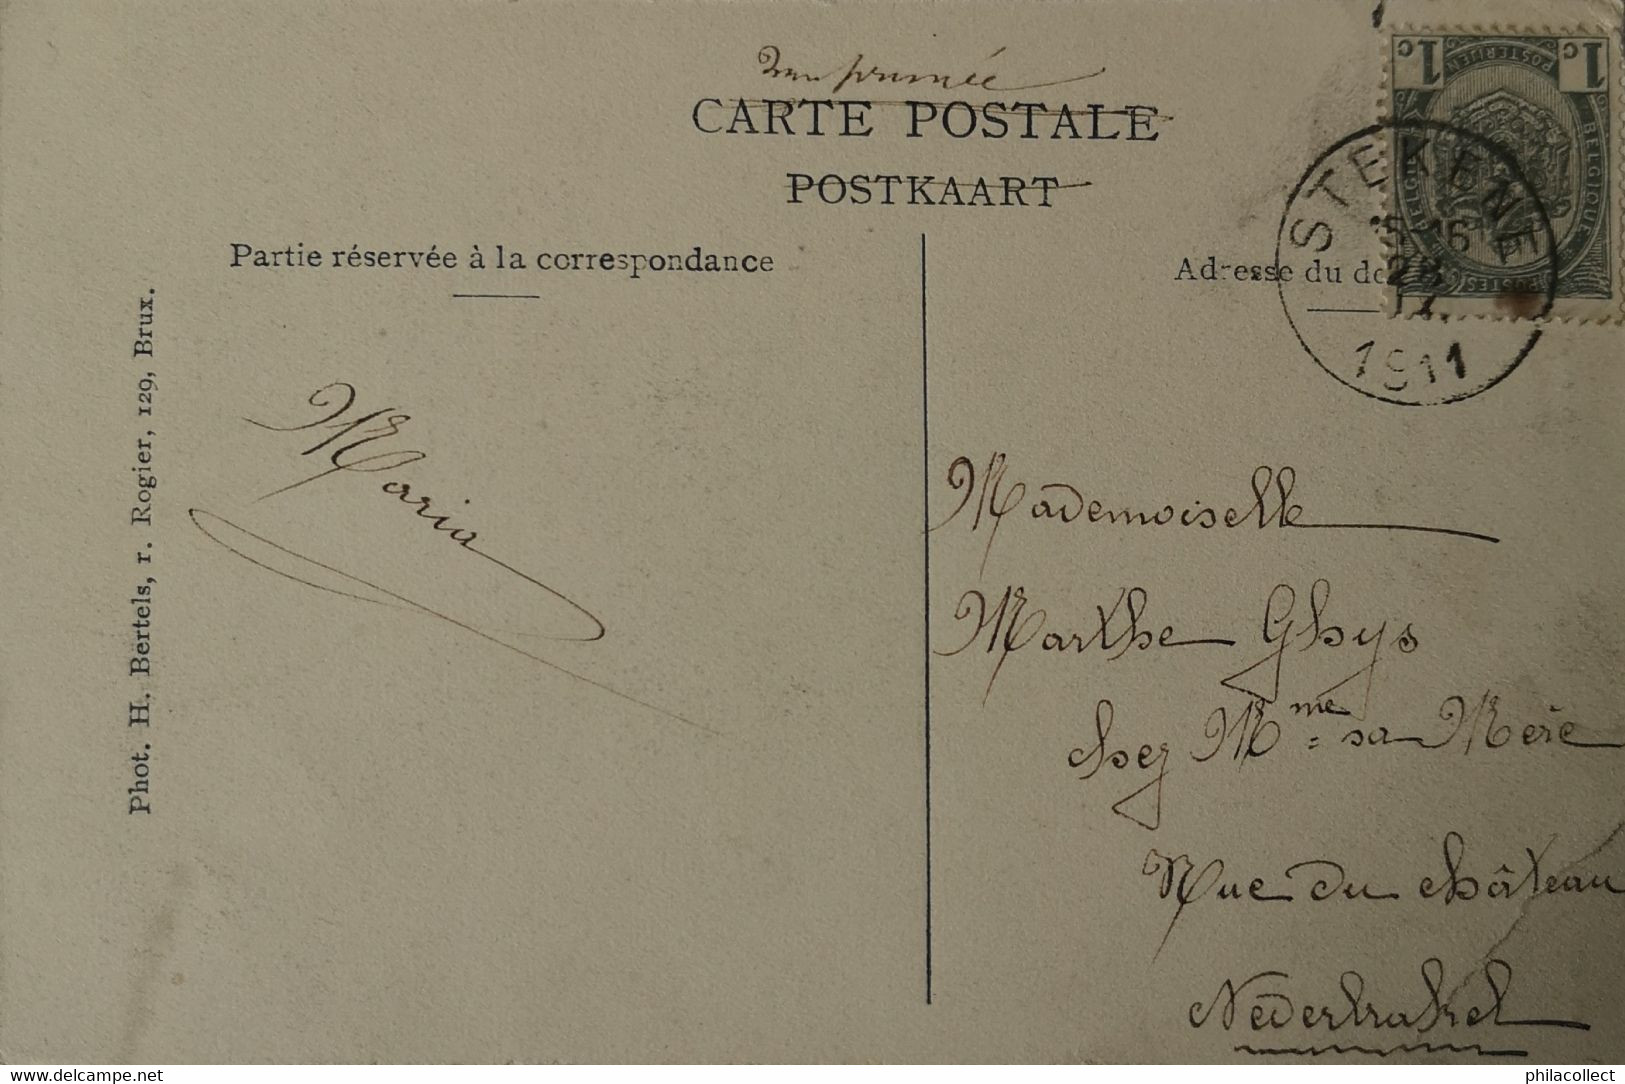 Imprimée
CARTE POSTALE
POSTKAART
Partie réservée à la correspondance
Adresse du de
1c 1c
POSTERIJEN
BELGIQUE
POSTES
STEKENE
16
28
1911
Phot. H. Bertels, r. Rogier, 129, Brux.
Maria
Mademoiselle
Marthe Ghys
chez Mme sa Mère
Rue du château
Nederbrakel
http://www.delcampe.net
philacollect